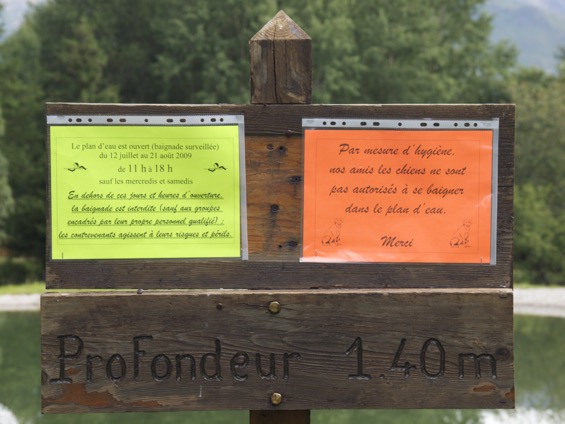 Le plan d'eau est ouvert (baignade surveillée)
du 12 juillet au 21 août 2009
de 11 h à 18 h
sauf les mercredis et samedis
En dehors de ces jours et heures d'ouverture,
la baignade est interdite (sauf aux groupes
encadrés par leur propre personnel qualifié) ;
les contrevenants agissent à leurs risques et périls.
Par mesure d'hygiène,
nos amis les chiens ne sont
pas autorisés à se baigner
dans le plan d'eau.
Merci
ProFondeur 1.40 m